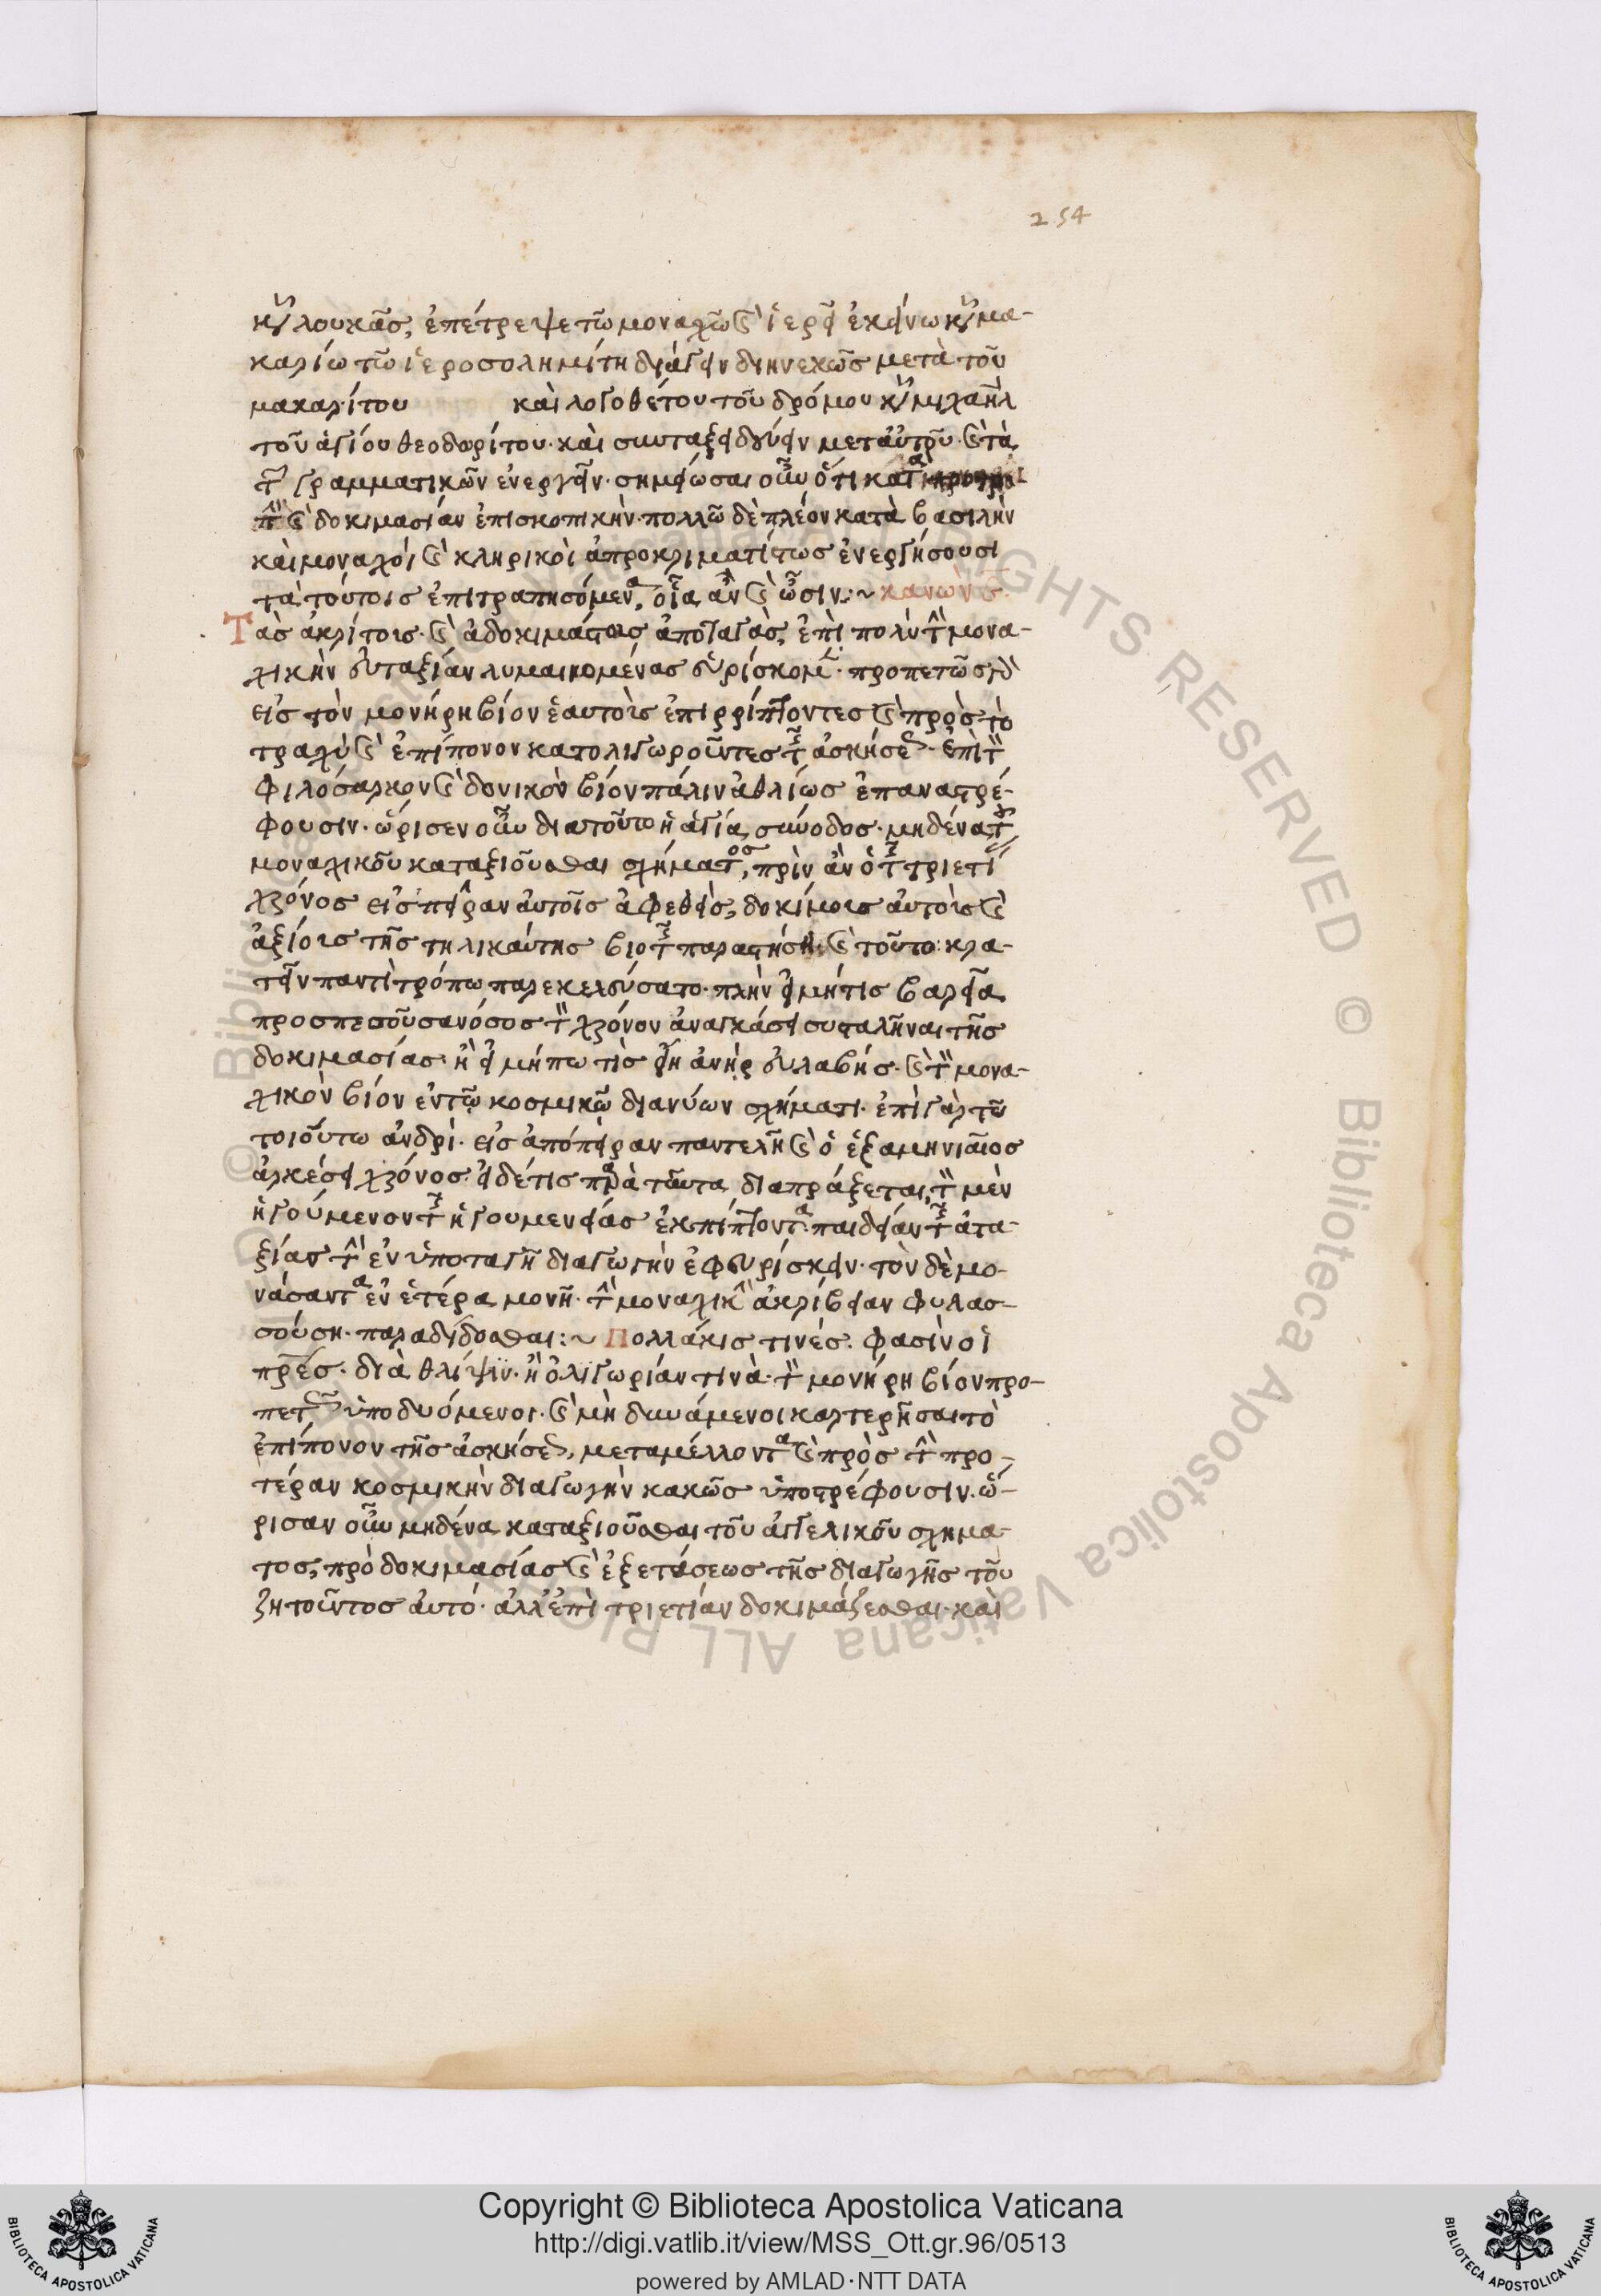 254
κὺρ λουκᾶς, ἐπέτρεψε τῶ μοναχῶ καὶ ἱερεῖ ἐκείνω κὺρ μα-
καρίω τῶ ἱεροσολημίτη διάγειν διηνεκῶς μετὰ τοῦ
μακαρίτου καὶ λογοθέτου τοῦ δρόμου κὺρ μιχαὴλ
τοῦ ἁγίου θεοδωρίτου· καὶ συνταξειδεύειν μετ' αὐτοῦ· καὶ τὰ
τῶν γραμματικῶν ἐνεργεῖν· σημείωσαι οὖν ὅτι κατὰ
καὶ δοκιμασίαν ἐπισκοπικὴν· πολλῶ δὲ πλέον κατὰ βασιλικὴν
καὶ μοναχοὶ καὶ κληρικοὶ ἀπροκριματίστως ἐνεργήσουσι
τὰ τούτοις ἐπιτραπησόμενα, οἷα ἂν καὶ ὦσιν:~ κανὼν ε
Τὰς ἀκρίτοις· καὶ ἀδοκιμάστοις ἀποταγὰς, ἐπὶ πολὺ τὴν μονα-
χικὴν εὐταξίαν λυμαινομένας εὑρίσκομεν· προπετῶς γὰρ
εἰς τὸν μονήρη βίον ἑαυτοὺς ἐπιρρίπτοντες καὶ πρὸς τὸ
τραχὺ καὶ ἐπίπονον κατολιγωροῦντες τῆς ἀσκήσεως· ἐπὶ τὸν
φιλόσαρκον καὶ δονικὸν βίον πάλιν ἀθλίως ἐπαναστρέ-
φουσιν· ὥρισεν οὖν διατοῦτο ἡ ἁγία σύνοδος· μηδένα τοῦ
μοναχικοῦ καταξιοῦσθαι σχήματος, πρὶν ἂν ὁ τῆς τριετίας
χρόνος εἰς πεῖραν αὐτοῖς ἀφεθεὶς, δοκίμους αὐτοὺς καὶ
ἀξίους τῆς τηλικαύτης βιοτῆς παραστήση· καὶ τοῦτο κρα-
τεῖν παντὶ τρόπω παρεκελεύσατο· πλὴν εἰ μήτις βαρεῖα
προσπεσοῦσα νόσος τὸν χρόνον ἀναγκάσει συσταλῆναι τῆς
δοκιμασίας· ἢ εἰ μήπω τὶς εἴη ἀνὴρ εὐλαβής· καὶ τὸν μονα-
χικὸν βίον ἐν τῶ κοσμικῶ διανύων σχήματι· ἐπὶ γὰρ τῶ
τοιούτω ἀνδρὶ· εἰς ἀπόπειραν παντελῆ καὶ ὁ ἑξαμηνιαῖος
ἀρκέσει χρόνος· εἰ δέ τις παρὰ ταῦτα διαπράξεται, τὸν μὲν
ἡγούμενον τῆς ἡγουμενείας ἐκπίπτοντα· παιδείαν τῆς ἀτα-
ξίας τὴν ἐν ὑποταγῆ διαγωγὴν ἐφευρίσκειν· τὸν δὲ μο-
νάσαντα ἐν ἑτέρα μονῆ· τὴν μοναχικὴν ἀκρίβειαν φυλασ-
σούση· παραδίδοσθαι:~ Πολλάκις τινές· φασὶν οἱ
πρες· διὰ θλίψιν· ἢ ὀλιγωρίαν τινὰ· τὸν μονήρη βίον προ-
πετῶς ὑποδυόμενοι· καὶ μὴ δυνάμενοι καρτερῆσαι τὸ
ἐπίπονον τῆς ἀσκήσεως, μεταμέλλονται καὶ πρὸς τὴν προ-
τέραν κοσμικὴν διαγωγὴν κακῶς ὑποστρέφουσιν· ὥ-
ρισαν οὖν μηδένα καταξιοῦσθαι τοῦ ἀγγελικοῦ σχήμα-
τος, πρὸ δοκιμασίας καὶ ἐξετάσεως τῆς διαγωγῆς τοῦ
ζητοῦντος αὐτό· ἀλλ' ἐπὶ τριετίαν δοκιμάζεσθαι· καὶ
Copyright © Biblioteca Apostolica Vaticana
http://digi.vatlib.it/view/MSS_Ott.gr.96/0513
powered by AMLAD·NTT DATA